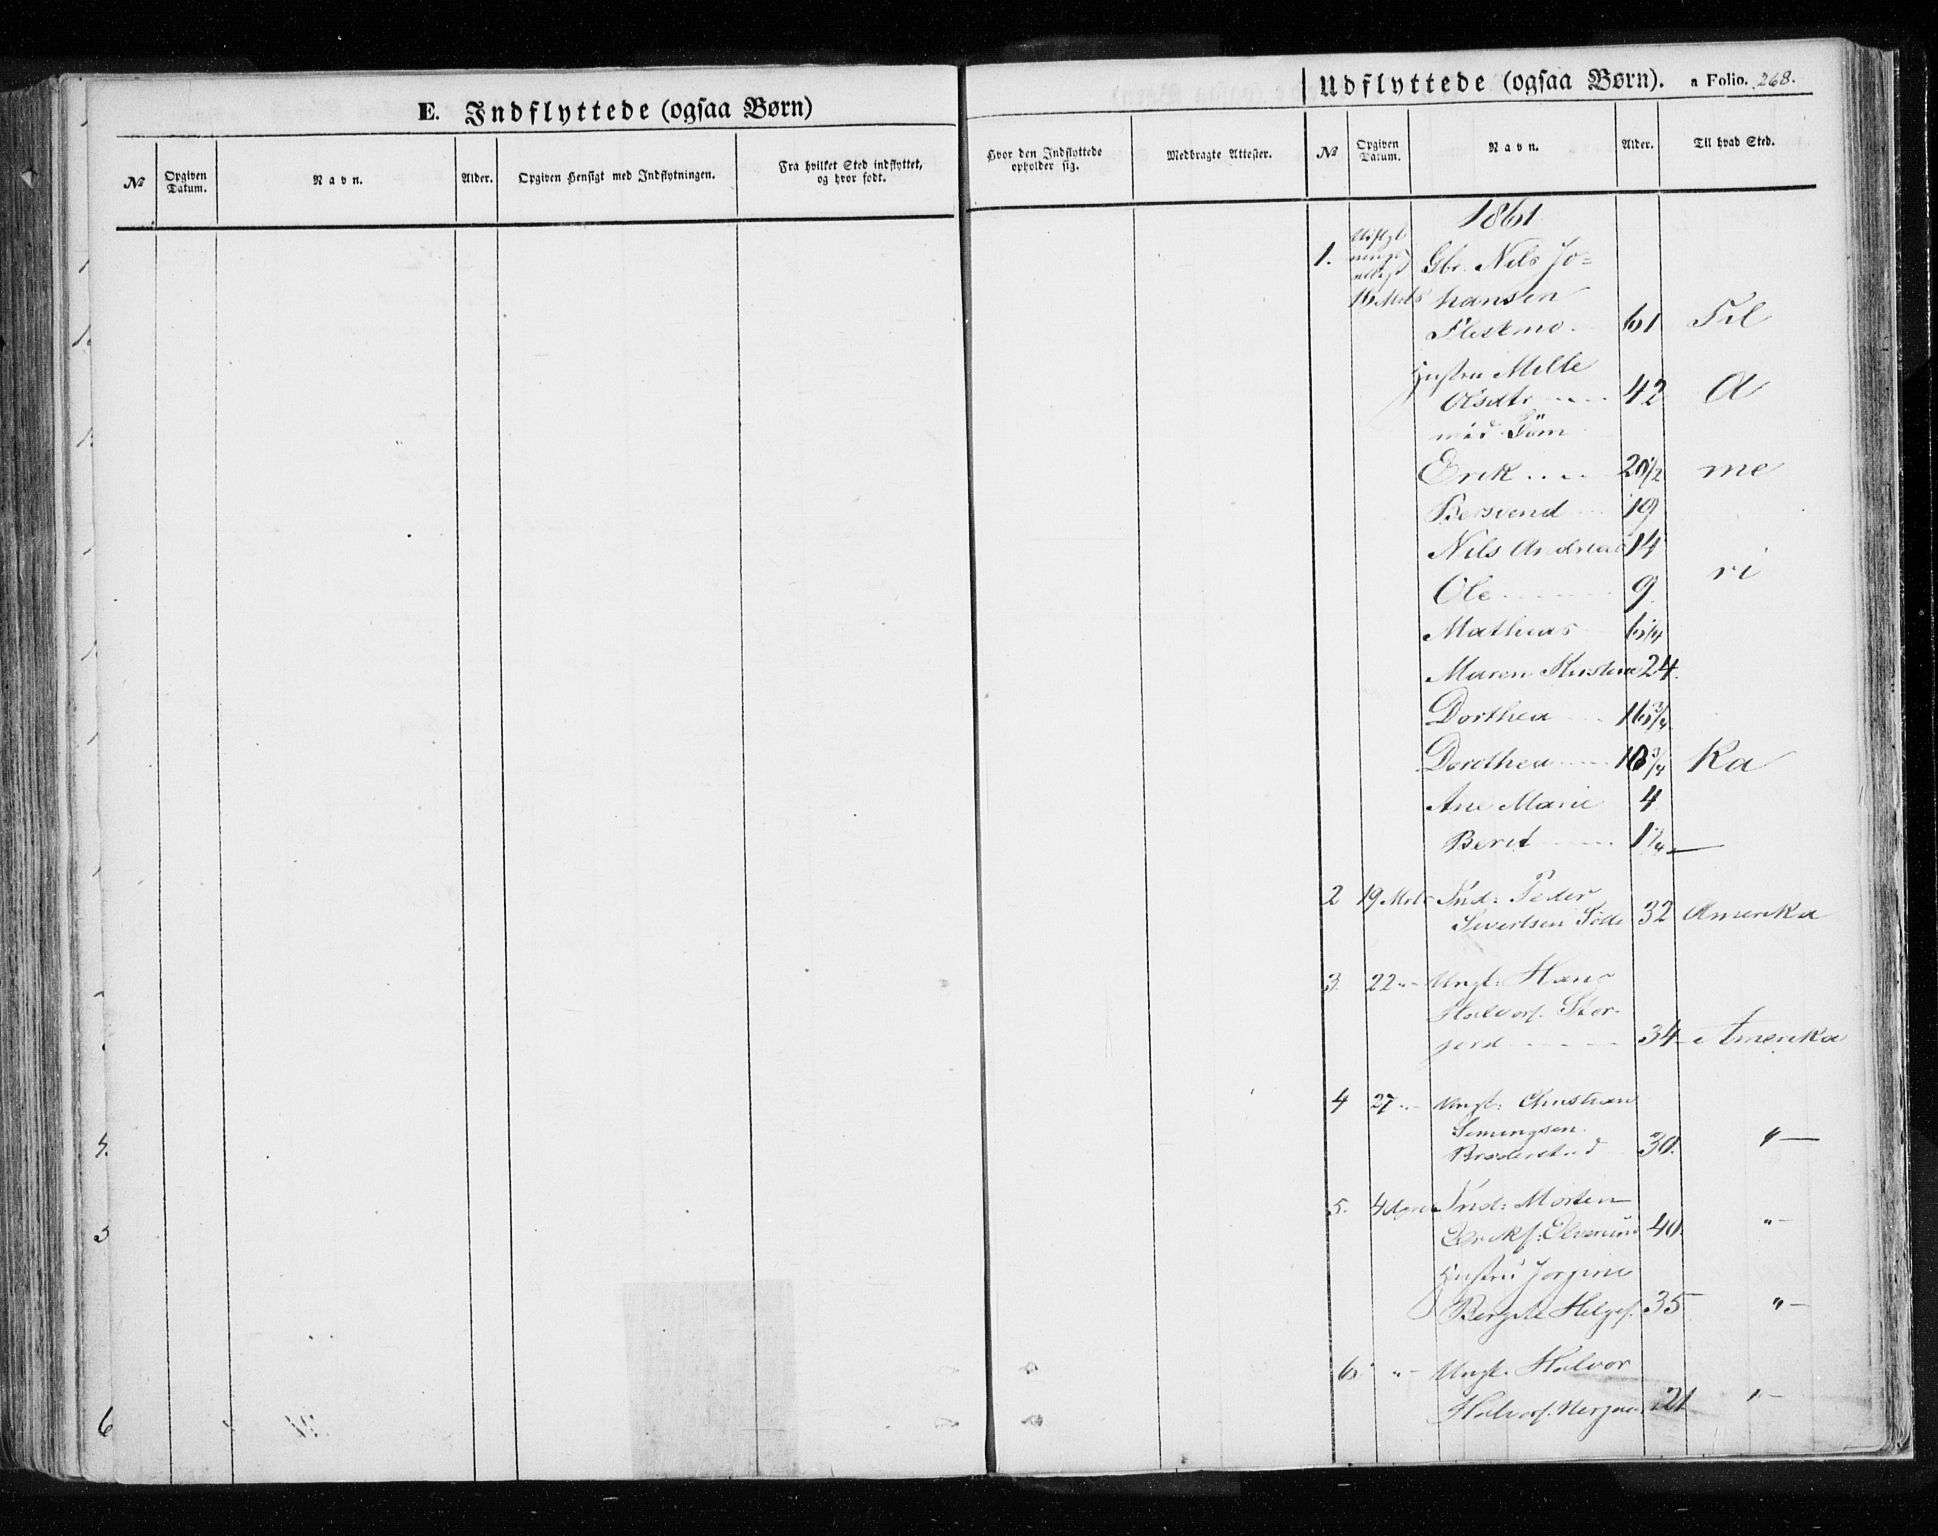 E. Indflyttede (ogsaa Børn)
№
Opgiven Datum.
Navn.
Alder.
Opgiven Hensigt med Indflytningen.
Fra hvilket Sted indflyttet,
og hvor født.
Hvor den Indflyttede
opholder sig.
Medbragte Attester.
Udflyttede (ogsaa Børn). a Folio. 268.
№
Opgiven Datum.
Navn.
Alder.
Til hvad Sted.
1861
1. Gbr. Nils Jo=
16 Mrts hansen
61 Til
Hustru Mille
Olsdtr 42 A
med
Erik 20 1/2 me
Bersvend 19
Nils Andreas 14
ri
Ole 9
Mathias 6 1/4
Maren Kirstine 24
Dorthea 16 3/4
Dorothea 10 3/4 Ka
Ane Marie 4
Berit 1 1/4 —
2 19 Mrts Ind: Peder
Sivertsen 32 Amerika
3. 22 "- Ungk: Hans
Halvors. Stor-
jord 34 Amerika
4 27 "- Ungk: Christian
Simingsen
Brøderstad 30. "-
5. 4 April Ind: Morten
Eriks: Elverum 40. "-
Hustru Jørgine
Bergite Helges. 35 "-
6 "- Ungk. Halvor
Halvors. 21 "-
4.
3
6